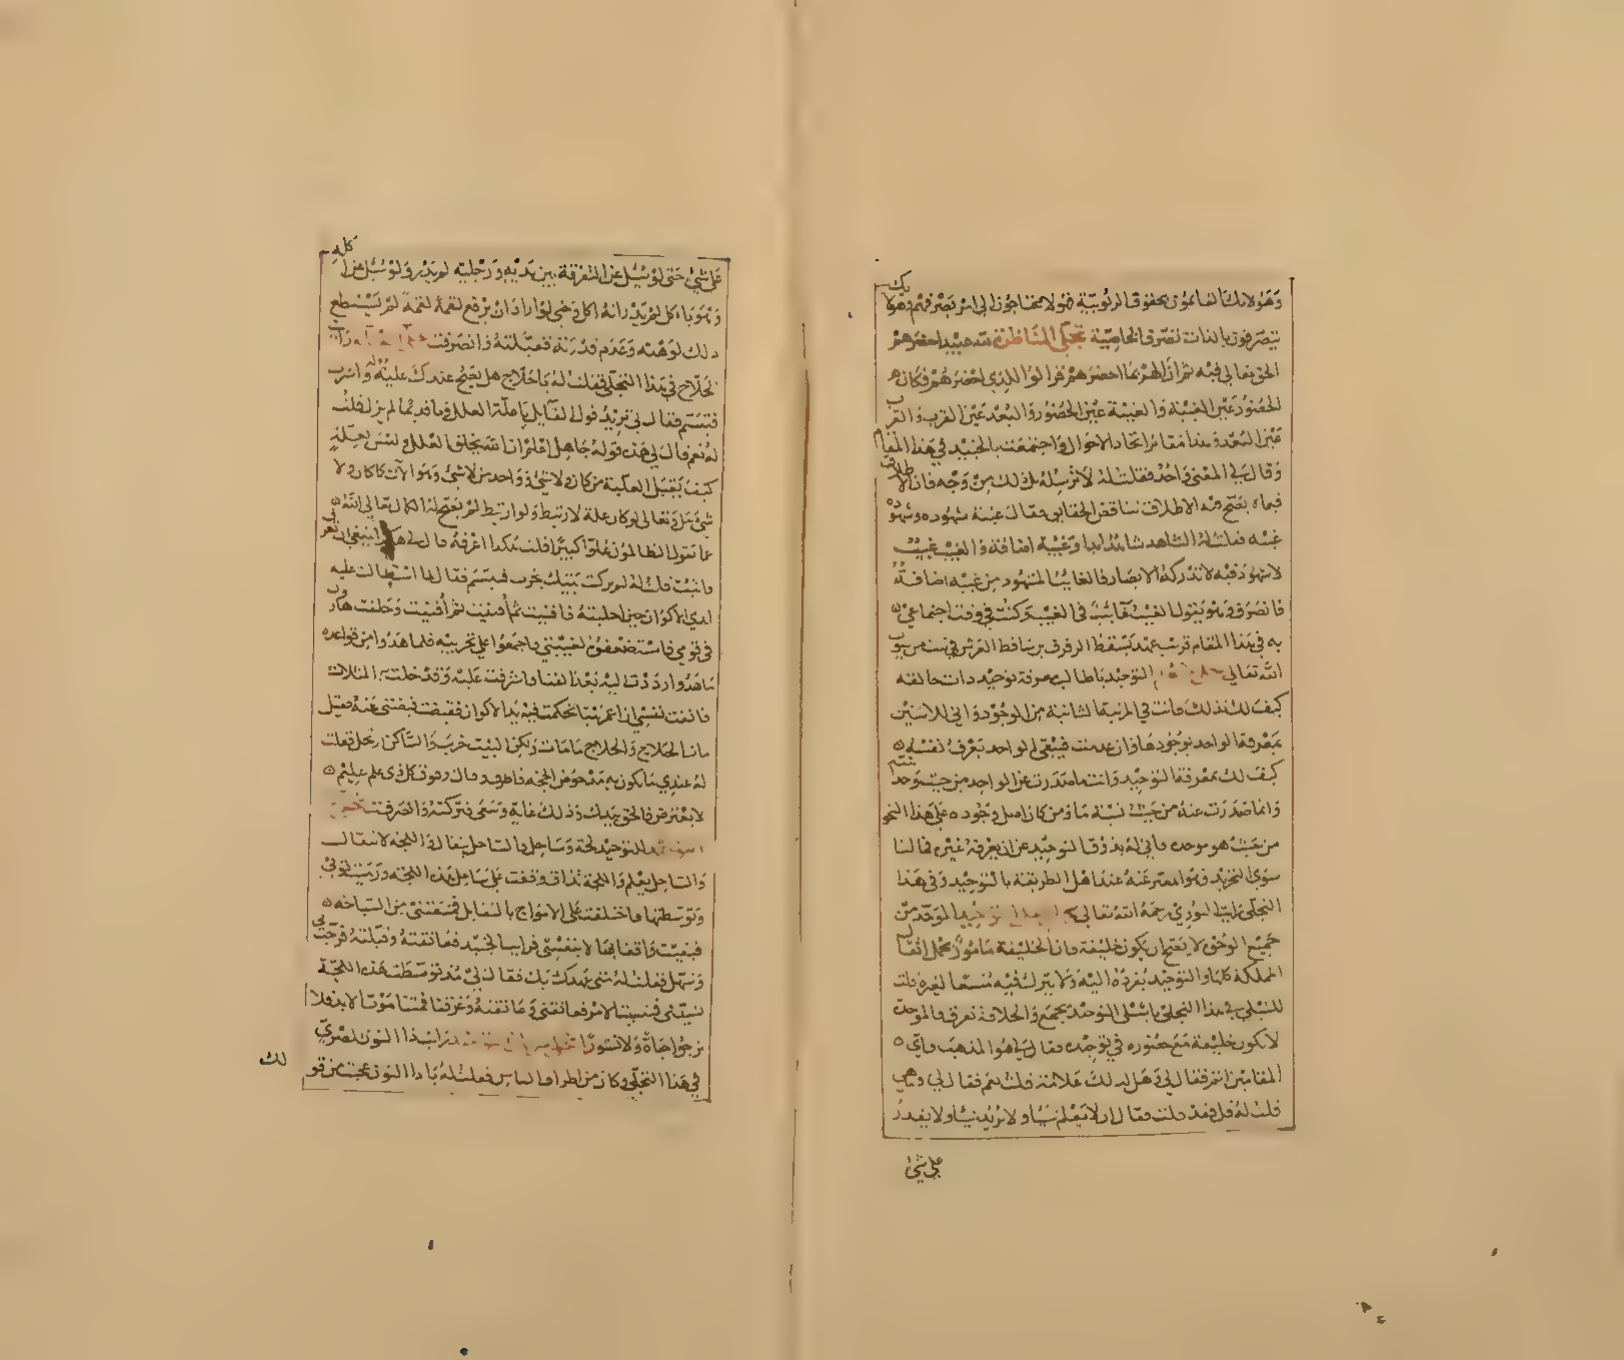 وهولايك القايمون بحقوق الربوبية فهولا محتاجون الى امر يصرفهم وهولا
يتصرفون بالذات تصرف الخاصية تجلي المناظر لله عبيد احضرهم
الحق تعالى فيه ثم ازالهم بما احضرهم فزالوا للذى احضرهم فكان
الحضور عين الغيبة والغيبة عين الحضور والبعد عين القرب والقرب
عين البعد وهذا مقام اتحاد الاحوال واجتمعت بالجنيد في هذا المقام
وقال لي المعنى واحد فقلت له لا ترسله بل ذلك من وجه فان الاطلاق
فيما لا يصح فيه الاطلاق يناقض الحقايق فقال غيبه شهوده وشهوده
غيبه فقلت له الشاهد شاهد ابدا وغيبه اضافة والغيب غيب
لا شهود فيه لا تدركه الابصار فالغايب المشهود من غيبه اضافة
فانصرف وهو يقول الغيب غايب في الغيب وكنت في وقت اجتماعي
به في هذا المقام قريب عهد بسقيط الرفرف بن ساقط العرش في بيت من بيوت
الله تعالى التوحيد يا طالب معرفة توحيد ذات خالقه
كيف لك بذلك وانت في المرتبة الثانية من الوجود واني للاثنين
بمعرفة الواحد بوجودها وان عدمت فيبقى الواحد يعرف نفسه
كيف لك بمعرفة التوحيد وانت ما صدرت عن الواحد من حيث وحدانيته
وانما صدرت عنه من حيث نسبة ما ومن كان اصل وجوده على هذا النحو
من حيث هو موحده فاني له بذوق التوحيد عن ان يعرفه غيره فما لنا
سوى التجريد وهو المعبر عنه عند اهل الطريقة بالتوحيد وفي هذا
التجلي رايت النوري رحمه الله تعالى الموحد من
جميع الوجوه لا يصح ان يكون خليفة فان الخليفة مامور بحمل اثقال
المملكة كلها والتوحيد يفرده اليه ولا يترك فيه متسعا لغيره قلت
للشبلي في هذا التجلي يا شبلي التوحيد يجمع والخلافة تفرق فالموحد
لا يكون خليفة مع حضوره في توحيده فقال لي هو المذهب فاي
المقامين اتم فقال لي وهل لذلك علامة قلت نعم فقال لي وما هي
قلت له قل فقد قلت فقال ان لا يعلم شيا ولا يريد شيا ولا يقدر
على شئ
على شئ حتى لو سئل عن التفرقة بين يديه ورجليه لم يدر ولو سئل عن اكله
وهو ياكل لم يدر انه اكل وحتى لو اراد ان يرفع لقمة لفمه لم يستطع
ذلك لوهنه وعدم قدرته فقبلته وانصرفت رايت
الحلاج في هذا التجلي فقلت له يا حلاج هل يصح عندك علية له واشرت
فتبسم فقال لي تريد قول القايل يا علة العلل وقديما لم يزل قلت
له نعم قال لي هذه قولة جاهل اعلم ان الله يخلق العلل وليس بعلة
كيف يقبل العلية من كان ولا شئ واوجد من لا شئ وهو الان كما كان ولا
شئ جل وتعالى لو كان علة لارتبط ولو ارتبط لم يصح له الكمال تعالى الله
عما يقول الظالمون علوا كبيرا قلت هكذا اعرفه قال لي هكذا ينبغي ان يعرف
فاثبت قلت له لم تركت بيتك يخرب فتبسم فقال لما استطالت عليه
ايدي الاكوان حين اخليته فافنيت ثم افنيت ثم افنيت وخلفت هارون
في قومي فاستضعفوه لغيبتي فاجمعوا على تخريبه فلما هدوا من قواعده
ما هدوا رددت اليه بعد الفنا فاشرفت عليه وقد حلت به المثلات
فانفت نفسي ان اعمر بيتا تحكمت فيه يد الاكوان فقبضت قبضتي عنه فقيل
مات الحلاج والحلاج ما مات ولكن البيت خرب والساكن ارتحل فقلت
له عندي ما تكون به مدحوض الحجة فاطرق وقال وفوق كل ذى علم عليم
لا تعترض فالحق بيدك وذلك غاية وسعي فتركته وانصرفت
للتوحيد لجة وساحل فالساحل ينقال واللجة لا تنقال
والساحل يعلم واللجة تذاق وقفت على ساحل هذه اللجة ورميت ثوبي
وتوسطتها فاختلفت على الامواج بالتقابل فمنعتني من السباحة
فبقيت واقفا بها لا بنفسي فرايت الجنيد فعانقته وقبلته فرحب بي
وسهل فقلت له متى عهدك بك فقال لي مذ توسطت هذه اللجة
نسيتني فنسيت الامد فعانقني وعانقته وغرقنا فمتنا موت الابد فلا
نرجو حياة ولا نشورا رايت ذا النون المصري
في هذا التجلي وكان من اطرف الناس فقلت له يا ذا النون عجبت من قو
لك